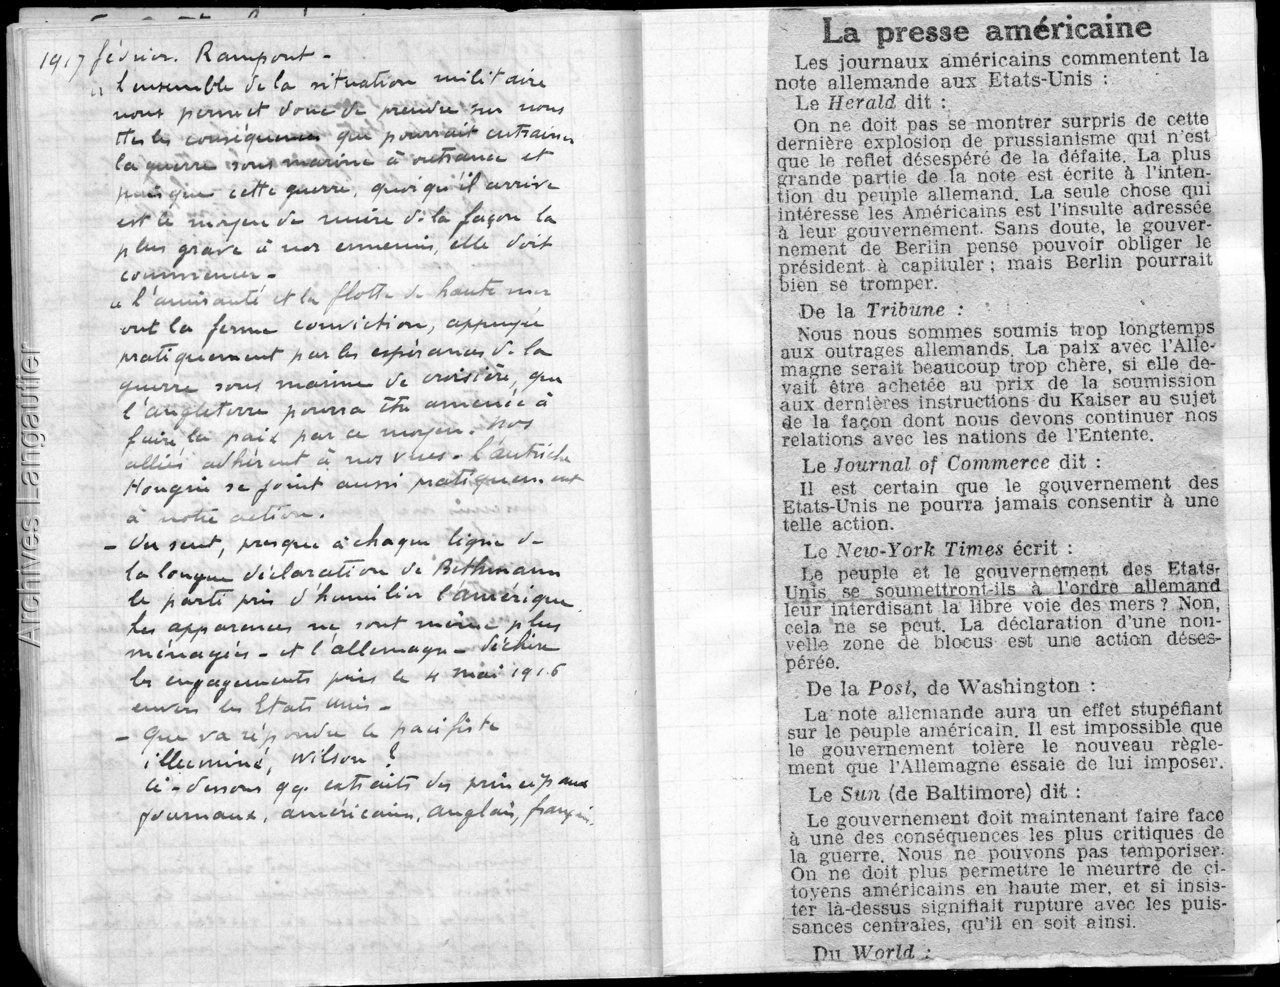 1917 février. Rampont -
« L'ensemble de la situation militaire
nous permet donc de prendre sur nous
ttes les conséquences que pourrait entrainer
la guerre sous marine à outrance et
puisque cette guerre, quoiqu'il arrive
est le moyen de nuire de la façon la
plus grave à nos ennemis, elle doit
commencer -
« L'amirauté et la flotte de haute mer
ont la ferme conviction, appuyée
pratiquement par les espérances de la
guerre sous marine de croisière, que
l'Angleterre pourra être amenée à
faire la paix par ce moyen. Nos
alliés adhérent à nos vues - L'Autriche
Hongrie se joint aussi pratiquement
à notre action.
- On sent, presque à chaque ligne de
la longue déclaration de Bethmann
le parti pris d'humilier l'Amérique.
Les apparences ne sont même plus
ménagées - et l'Allemagne déchire
les engagements pris le 4 mai 1916
envers les Etats Unis -
- Que va répondre le pacifiste
illuminé, Wilson ?
Ci-dessous qq. extraits des principaux
journaux, américains, anglais, français.
La presse américaine
Les journaux américains commentent la
note allemande aux Etats-Unis :
Le Herald dit :
On ne doit pas se montrer surpris de cette
dernière explosion de prussianisme qui n'est
que le reflet désespéré de la défaite. La plus
grande partie de la note est écrite à l'inten-
tion du peuple allemand. La seule chose qui
intéresse les Américains est l'insulte adressée
à leur gouvernement. Sans doute, le gouver-
nement de Berlin pense pouvoir obliger le
président à capituler ; mais Berlin pourrait
bien se tromper.
De la Tribune :
Nous nous sommes soumis trop longtemps
aux outrages allemands. La paix avec l'Alle-
magne serait beaucoup trop chère, si elle de-
vait être achetée au prix de la soumission
aux dernières instructions du Kaiser au sujet
de la façon dont nous devons continuer nos
relations avec les nations de l'Entente.
Le Journal of Commerce dit :
Il est certain que le gouvernement des
Etats-Unis ne pourra jamais consentir à une
telle action.
Le New-York Times écrit :
Le peuple et le gouvernement des Etats-
Unis se soumettront-ils à l'ordre allemand
leur interdisant la libre voie des mers ? Non,
cela ne se peut. La déclaration d'une nou-
velle zone de blocus est une action déses-
pérée.
De la Post, de Washington :
La note allemande aura un effet stupéfiant
sur le peuple américain. Il est impossible que
le gouvernement tolère le nouveau règle-
ment que l'Allemagne essaie de lui imposer.
Le Sun (de Baltimore) dit :
Le gouvernement doit maintenant faire face
à une des conséquences les plus critiques de
la guerre. Nous ne pouvons pas temporiser.
On ne doit plus permettre le meurtre de ci-
toyens américains en haute mer, et si insis-
ter là-dessus signifiait rupture avec les puis-
sances centrales, qu'il en soit ainsi.
Du World :
Archives Langautier